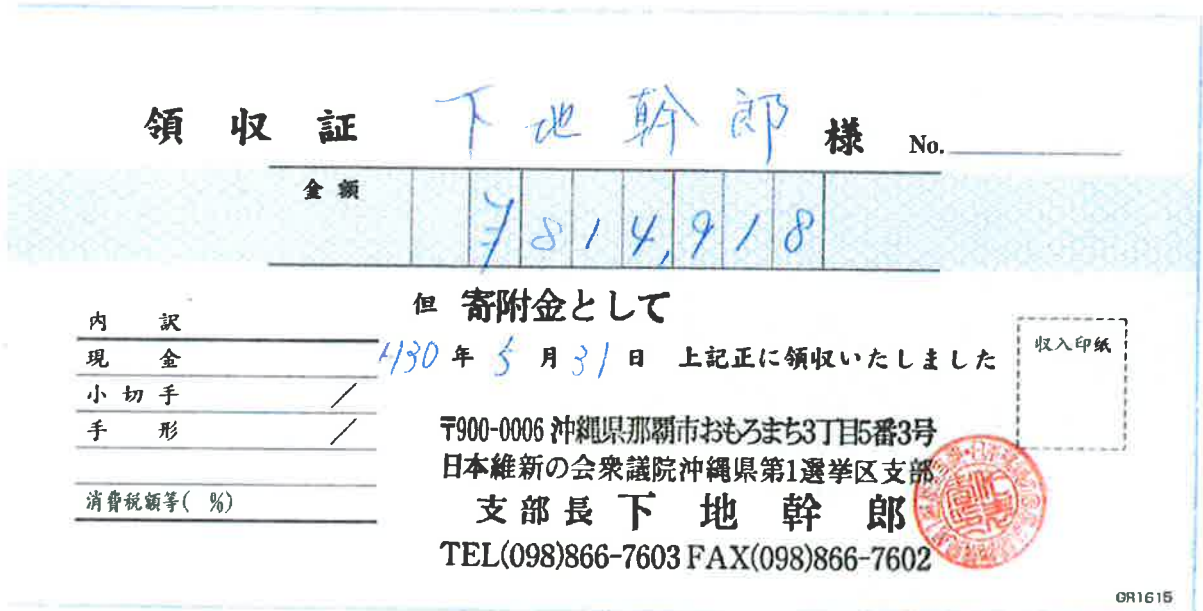 領収証 下地幹郎 様 No.
金額 ¥814,918
但 寄附金として
内訳
現金
小切手 /
手形 /
消費税額等( %)
H30年5月31日 上記正に領収いたしました
収入印紙
〒900-0006 沖縄県那覇市おもろまち3丁目5番3号
日本維新の会衆議院沖縄県第1選挙区支部
支部長 下地幹郎
TEL(098)866-7603 FAX(098)866-7602
GR1615